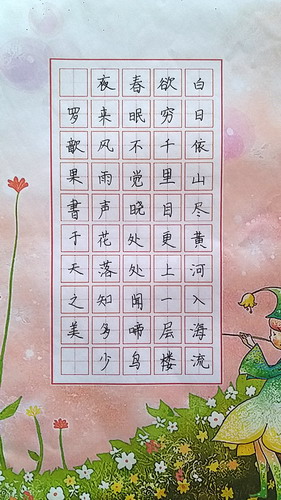 白日依山尽黄河入海流
欲穷千里目更上一层楼
春眠不觉晓处处闻啼鸟
夜来风雨声花落知多少
罗歆果書于天之美